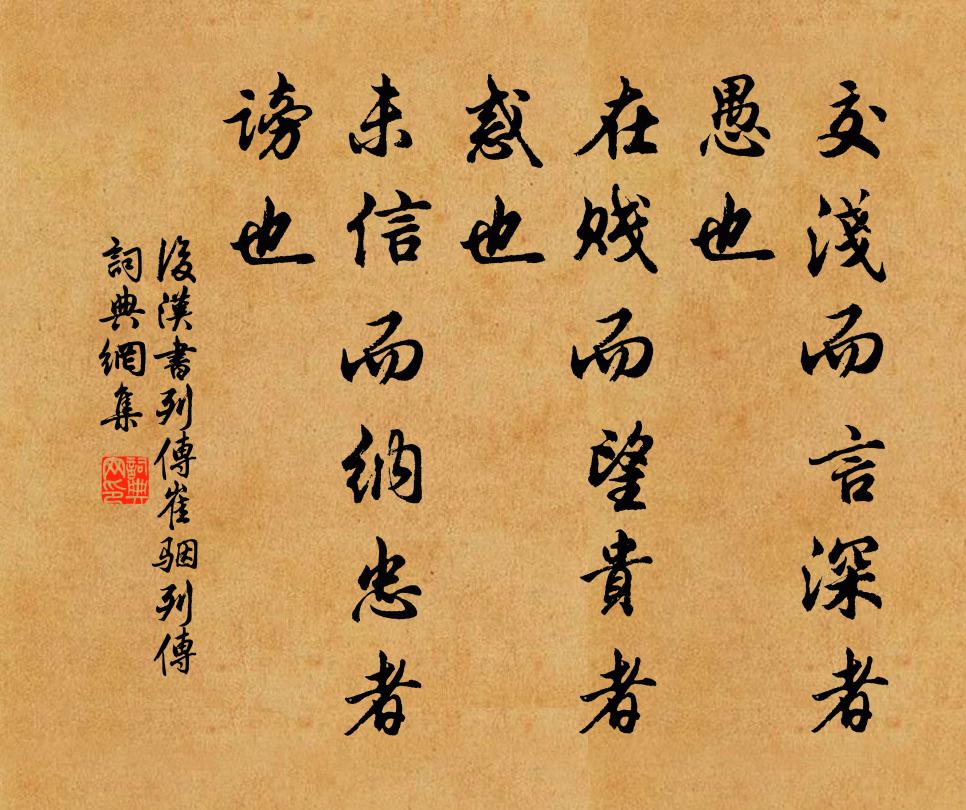 交淺而言深者
愚也
在賤而望貴者
惑也
未信而納忠者
謗也
後漢書列傳崔駰列傳
詞典網集
詞典
网印